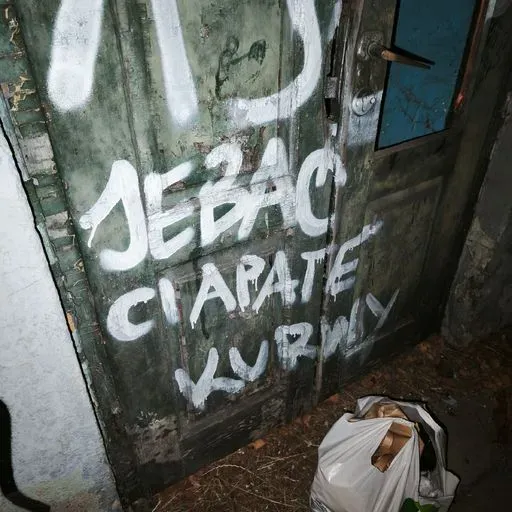 JEBAĆ
CIAPATE
KURWY